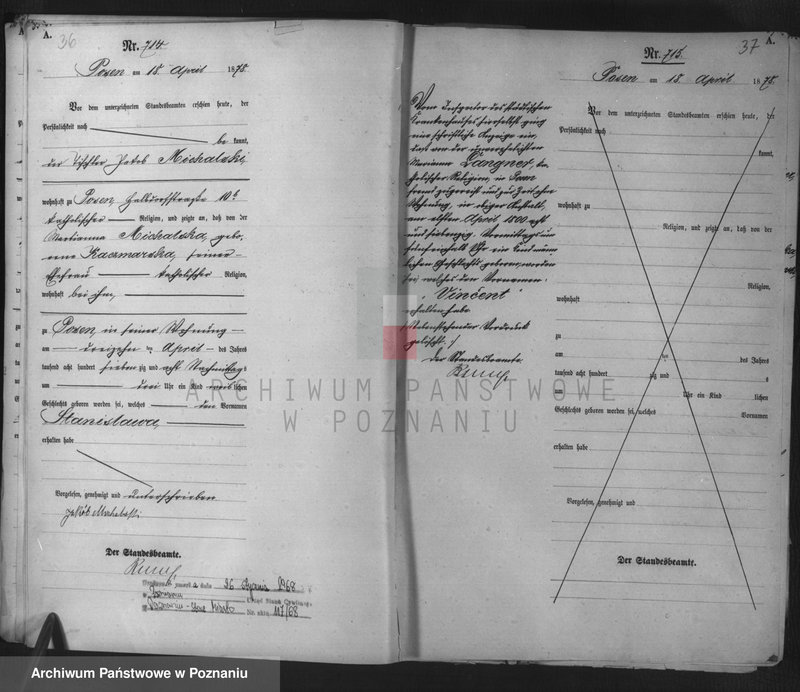 A.
36
Nr. 714.
Posen am 15 April 1878.
Vor dem unterzeichneten Standesbeamten erschien heute, der
Persönlichkeit nach
be kannt,
der Tischler Jakob Michalski,
wohnhaft zu Posen, Halbdorfstraße
katholischer Religion, und zeigte an, daß von der
Marianna Michalska, gebo-
rene Kaczmarska, seiner
Ehefrau katholischer Religion,
wohnhaft bei ihm,
zu Posen, in seiner Wohnung
am dreizehn ten April des Jahres
tausend acht hundert sieben zig und acht Nachmittags
um drei Uhr ein Kind weiblichen
Geschlechts geboren worden sei, welches den Vornamen
Stanislawa,
erhalten habe
Vorgelesen, genehmigt und unterschrieben
Jakób Michalski
Der Standesbeamte.
26 1968
Urząd Stanu Cywilnego
Nr. aktu 117/68
37
A.
Nr. 715.
Posen am 15 April 1878.
Vom Inspector des städtischen
Krankenhauses hierselbst ging
eine schriftliche Anzeige ein,
daß von der unverehelichten
Marianna Langner, ka-
tholischer Religion, in Posen
Wohnung, in obiger Anstalt,
am elften April 1800 acht
und siebenzig Vormittags um
fünf einhalb Uhr ein Kind männ-
lichen Geschlechts geboren worden
sei, welches den Vornamen
"Vincent"
erhalten habe
Nebenstehender Vordruck
gelöscht.
Der Standesbeamte.
Vor dem unterzeichneten Standesbeamten erschien heute, der
Persönlichkeit nach
kannt,
wohnhaft zu
Religion, und zeigte an, daß von der
Religion,
wohnhaft
zu
am ten des Jahres
tausend acht hundert zig und s
um Uhr ein Kind lichen
Geschlechts geboren worden sei, welches Vornamen
erhalten habe
Vorgelesen, genehmigt und
Der Standesbeamte.
ARCHIWUM PAŃSTWOWE
W POZNANIU
Archiwum Państwowe w Poznaniu